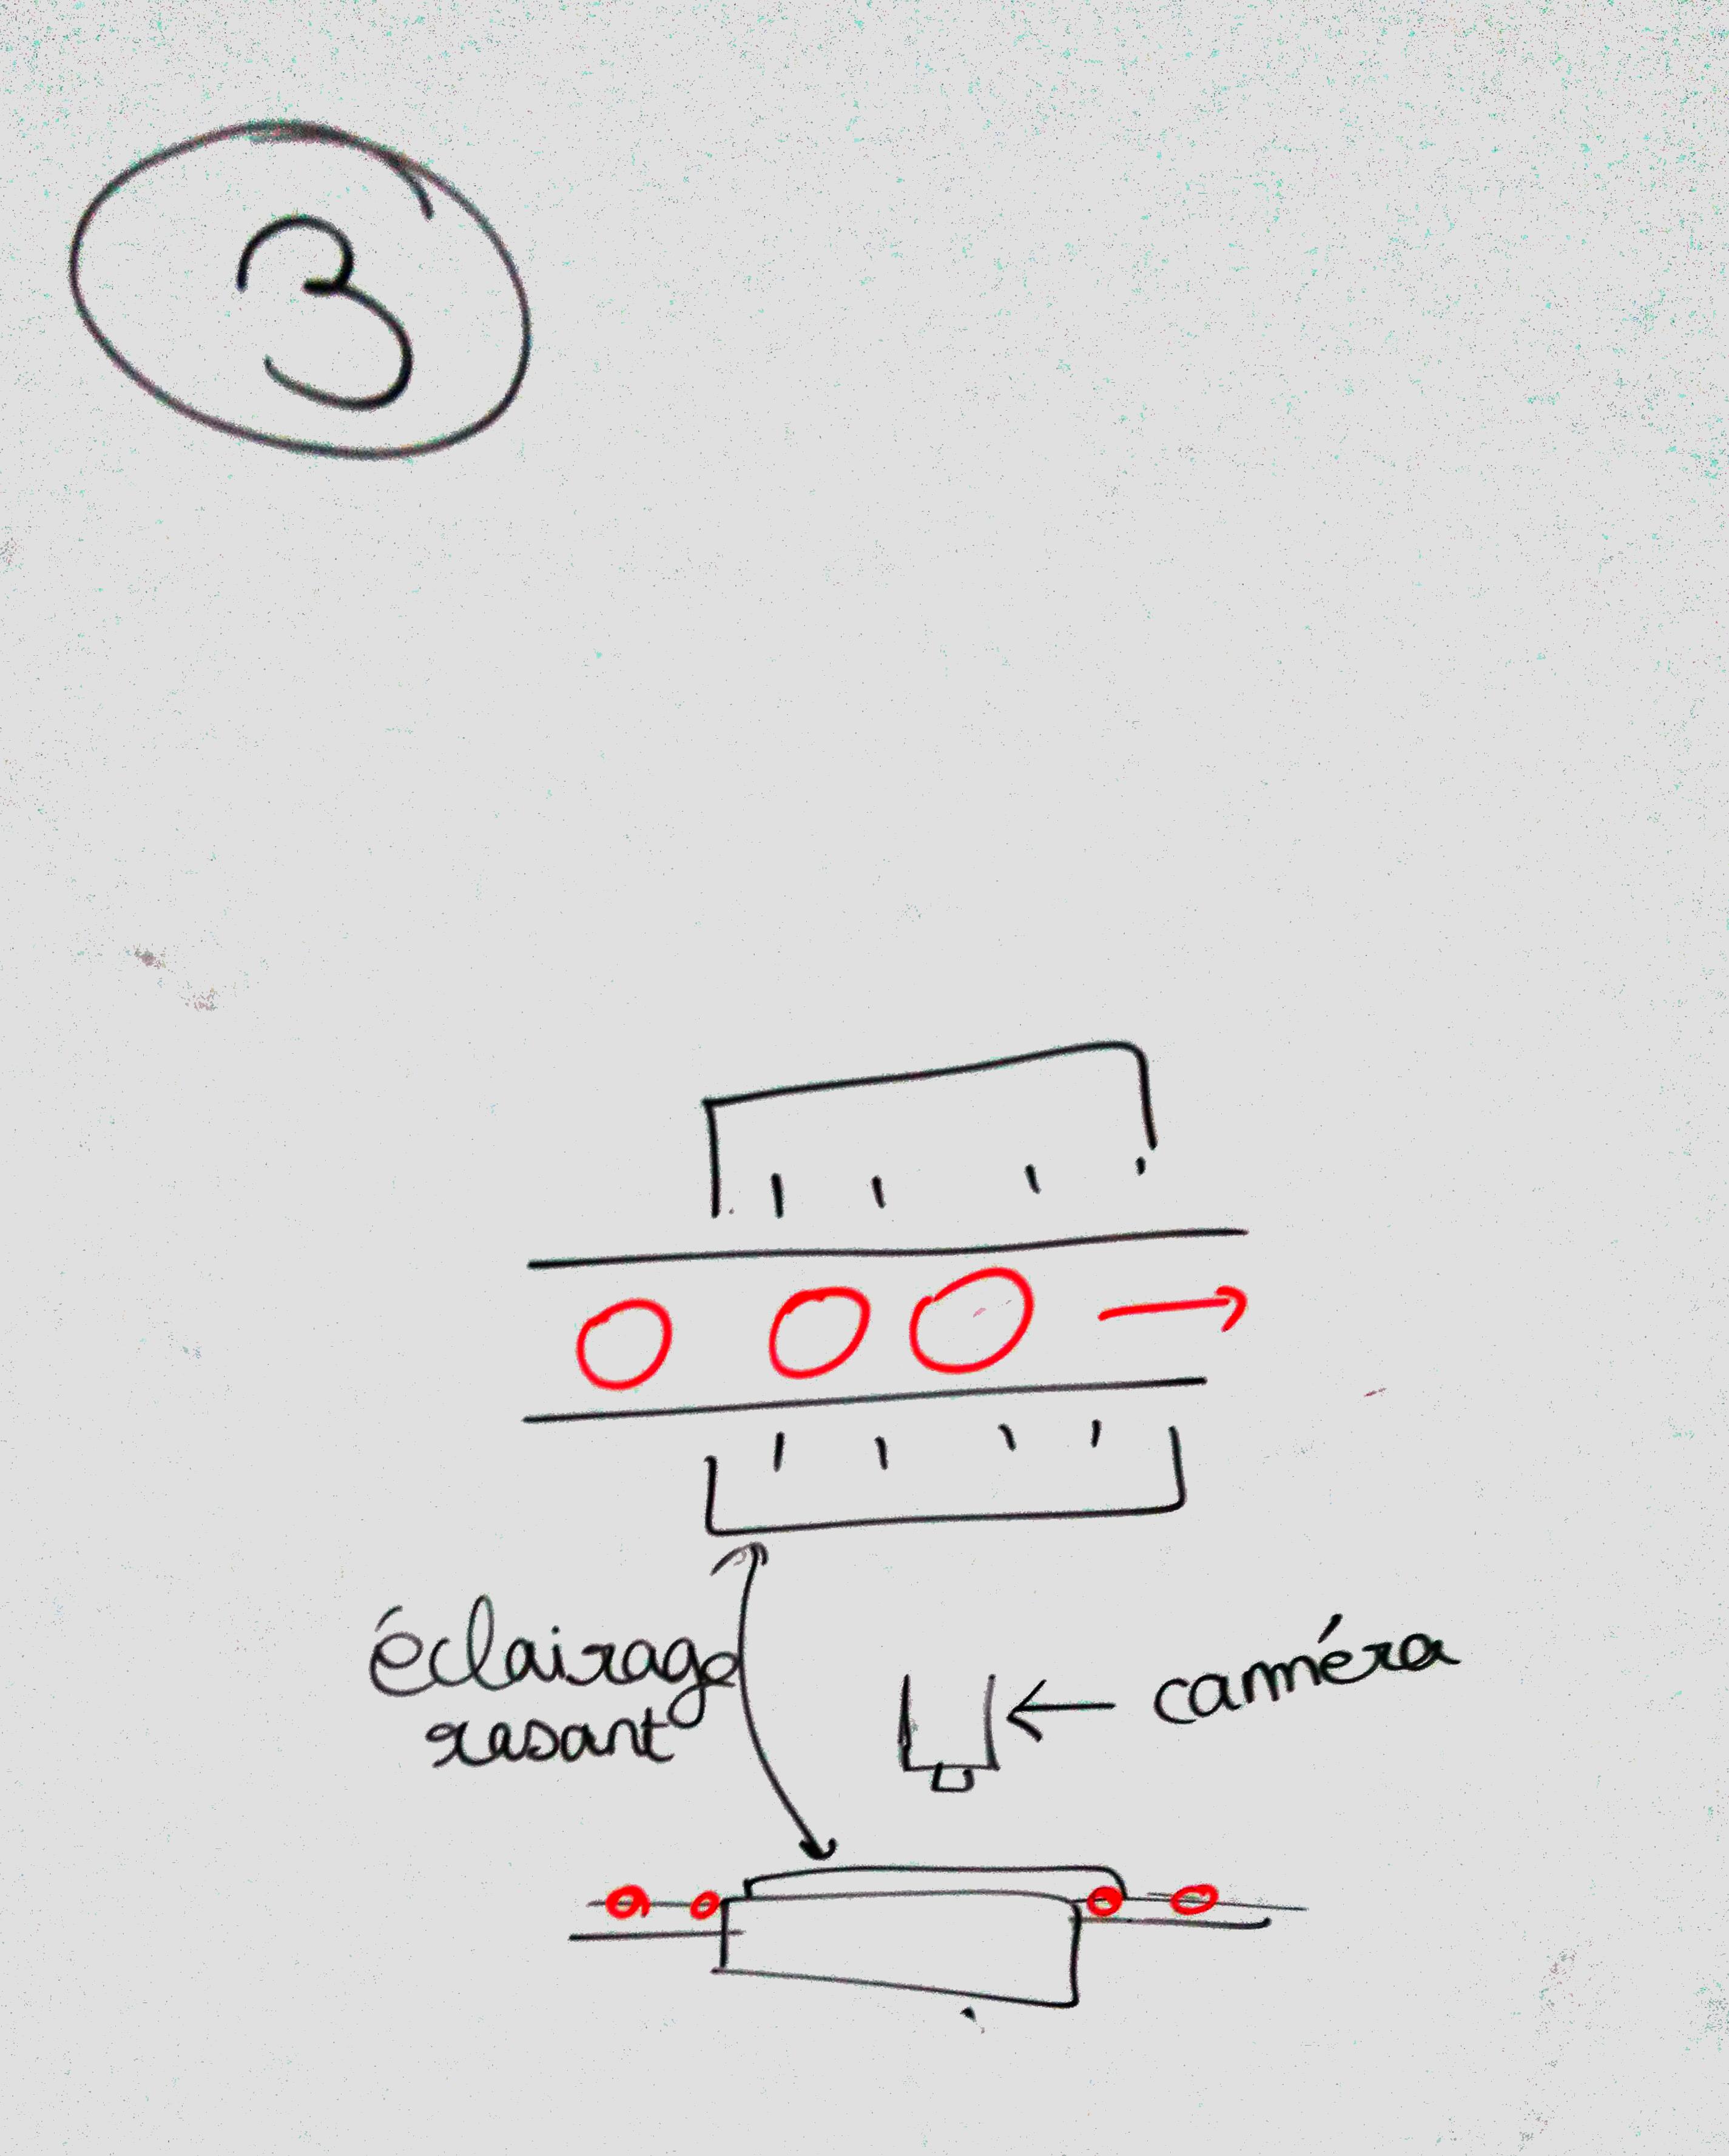 3
éclairage
rasant
caméra